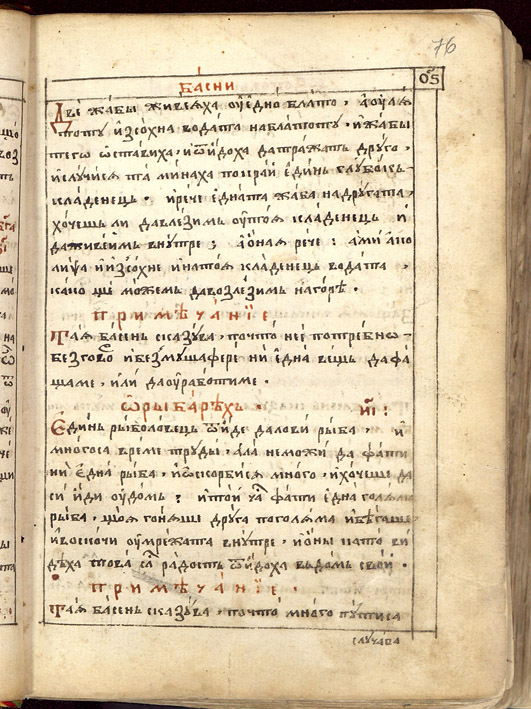 76
о҃ѕ
басни
Двѣ жабы живѣяха ѹ едно блато, а ѹ лѧ
тото изсохна водата на блатоту, и жабы
тегѡ ѡставиха, и ѿидоха да тражатъ друго,
и случися та минаха покрай единь глубокъ
кладенець. и рече едната жаба на другата,
хочешь ли да влезимь ѹ тоя кладенець и
да живеимь внутре; а оная рече: ами ако
лиѱа и изсохне и натоя кладенець водата,
како ще можемь да возлезимь нагорѣ.
примѣчанїе
Тая басень сказува, почто нее потребнѡ
без говоръ и без мушавере ни една вещь да фа
щаме, или да ѹработиме.
ѡ рыбарехъ. и҃і:
Единь рыболовець ѿиде да лови рыба, и
многося време труды, ала неможи да фати
ни една рыба, и ѡскорбися много, и хочеше да
си иди ѹ домъ; и тои часъ фати една голяма
рыба, щоя гоняше друга поголяма и бѣгаше
и воскочи ѹ мрежата внутре, и оны като ви
дѣха това съ радость ѿидоха въ домъ свой.
примѣчанїе.
Тая басень сказува, почто много путиса
случава